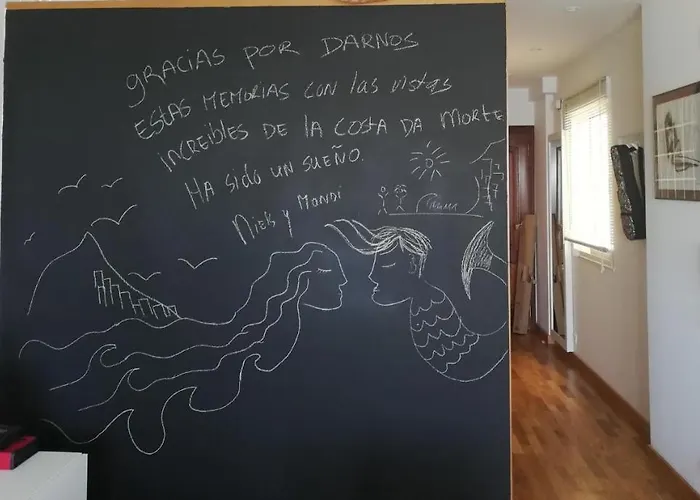 GRACIAS POR DARNOS
ESTAS MEMORIAS CON las vistas
INCREIBLES DE la COSTA DA MORTE
HA sido UN SUEÑO.
Niek y Mandi